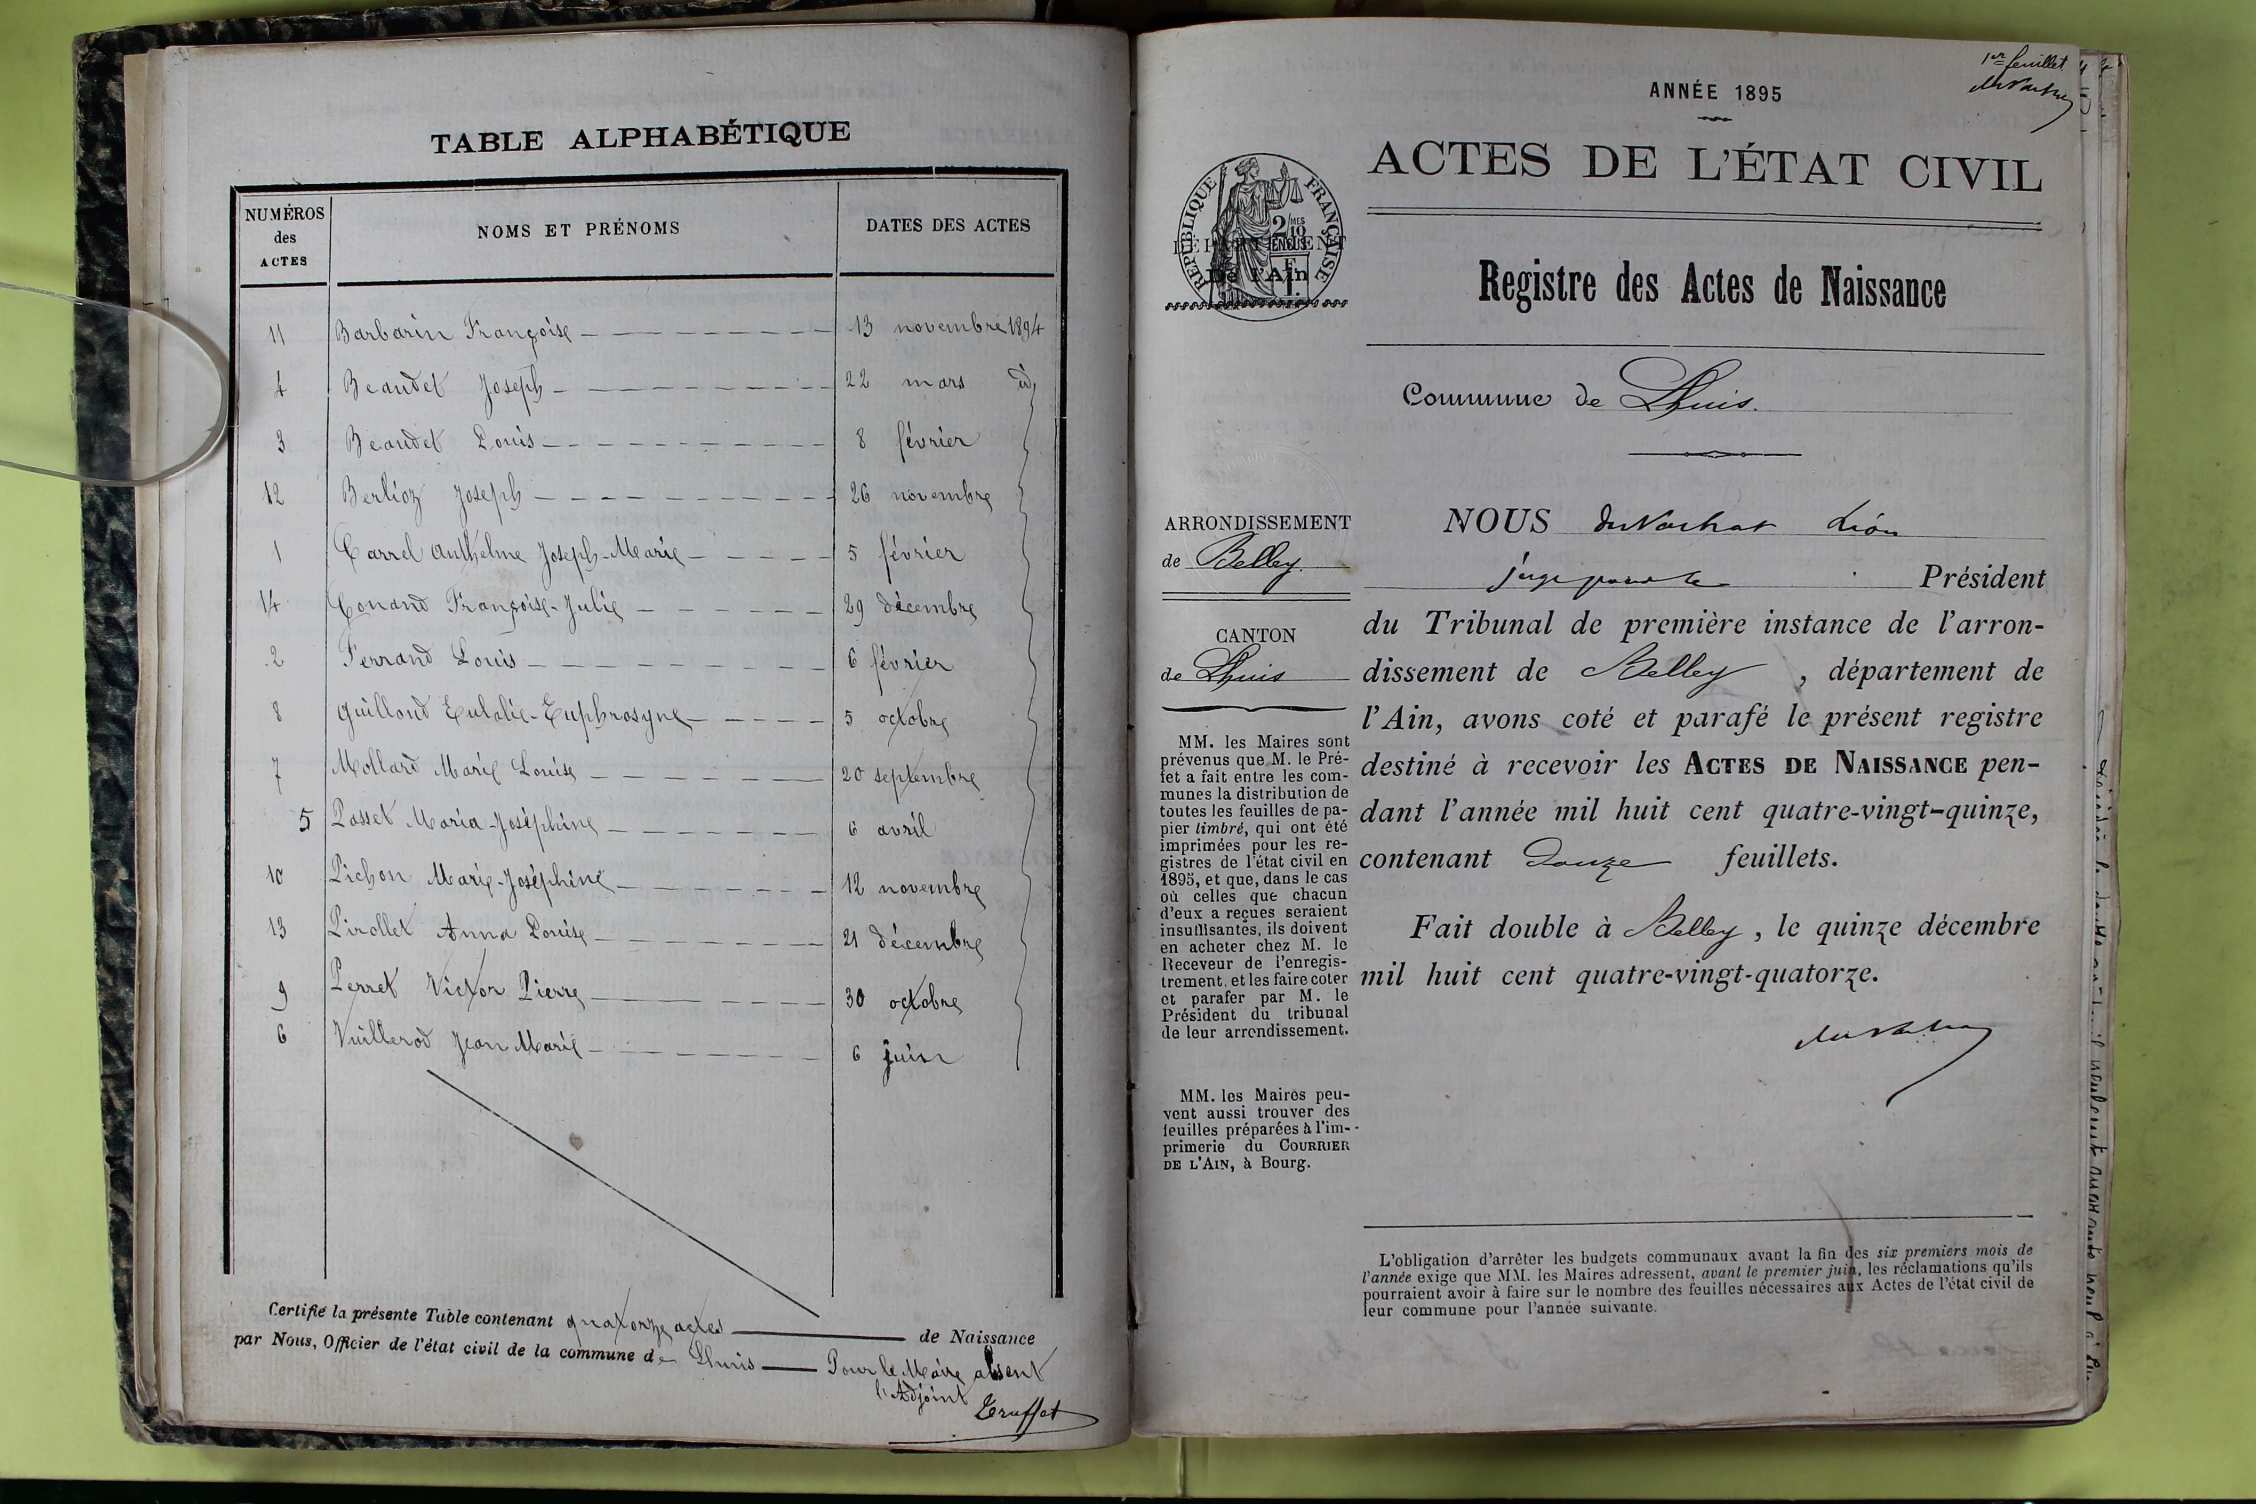 TABLE ALPHABÉTIQUE
NUMÉROS des ACTES | NOMS ET PRÉNOMS | DATES DES ACTES
11 Barbarin Françoise 13 novembre 1894
4 Beaudet Joseph 22 mars id
3 Beaudet Louis 8 février
12 Berlioz Joseph 26 novembre
1 Carrel Anthelme Joseph-Marie 5 février
14 Conand Françoise-Julie 29 décembre
2 Ferrand Louis 6 février
8 Guilloud Eulalie-Euphrosyne 5 octobre
7 Mollard Marie Louise 20 septembre
5 Passet Maria-Joséphine 6 avril
10 Pichon Marie-Joséphine 12 novembre
13 Pirollet Anna Louise 21 décembre
9 Perret Victor Pierre 30 octobre
6 Vuillerod Jean Marie 6 juin
Certifié la présente Table contenant quatorze actes de Naissance
par Nous, Officier de l'état civil de la commune de Lhuis Pour le Maire absent
l'Adjoint
Truffet
1er feuillet
ANNÉE 1895
ACTES DE L'ÉTAT CIVIL
RÉPUBLIQUE FRANÇAISE
2/10 MES
EN SUS
1 F.
DÉPARTEMENT
De l'Ain
Registre des Actes de Naissance
Commune de Lhuis.
ARRONDISSEMENT
de Belley.
CANTON
de Lhuis
MM. les Maires sont
prévenus que M. le Pré-
fet a fait entre les com-
munes la distribution de
toutes les feuilles de pa-
pier timbré, qui ont été
imprimées pour les re-
gistres de l'état civil en
1895, et que, dans le cas
où celles que chacun
d'eux a reçues seraient
insuffisantes, ils doivent
en acheter chez M. le
Receveur de l'enregis-
trement, et les faire coter
et parafer par M. le
Président du tribunal
de leur arrondissement.
MM. les Maires peu-
vent aussi trouver des
feuilles préparées à l'im-
primerie du COURRIER
DE L'AIN, à Bourg.
NOUS duVachat Léon
juge Président
du Tribunal de première instance de l'arron-
dissement de Belley, département de
l'Ain, avons coté et parafé le présent registre
destiné à recevoir les ACTES DE NAISSANCE pen-
dant l'année mil huit cent quatre-vingt-quinze,
contenant Douze feuillets.
Fait double à Belley, le quinze décembre
mil huit cent quatre-vingt-quatorze.
L'obligation d'arrêter les budgets communaux avant la fin des six premiers mois de
l'année exige que MM. les Maires adressent, avant le premier juin, les réclamations qu'ils
pourraient avoir à faire sur le nombre des feuilles nécessaires aux Actes de l'état civil de
leur commune pour l'année suivante.